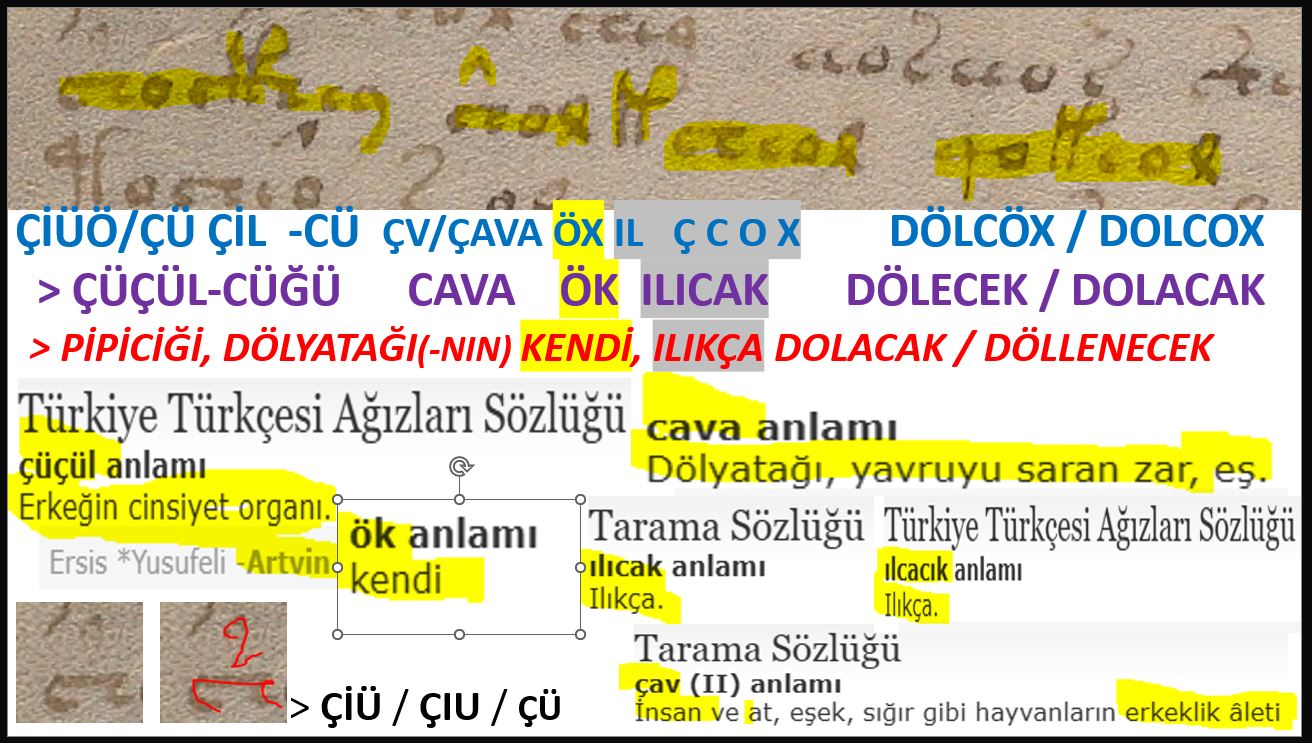 ÇİÜÖ/ÇÜ ÇİL -CÜ ÇV/ÇAVA ÖX IL Ç C O X DÖLCÖX / DOLCOX
> ÇÜÇÜL-CÜĞÜ CAVA ÖK ILICAK DÖLECEK / DOLACAK
> PİPİCİĞİ, DÖLYATAĞI(-NIN) KENDİ, ILIKÇA DOLACAK / DÖLLENECEK
Türkiye Türkçesi Ağızları Sözlüğü
çüçül anlamı
Erkeğin cinsiyet organı.
Ersis *Yusufeli -Artvin
cava anlamı
Dölyatağı, yavruyu saran zar, eş.
ök anlamı
kendi
Tarama Sözlüğü
ılıcak anlamı
Ilıkça.
Türkiye Türkçesi Ağızları Sözlüğü
ılcacık anlamı
Ilıkça.
Tarama Sözlüğü
çav (II) anlamı
İnsan ve at, eşek, sığır gibi hayvanların erkeklik âleti
> ÇİÜ / ÇIU / ÇÜ